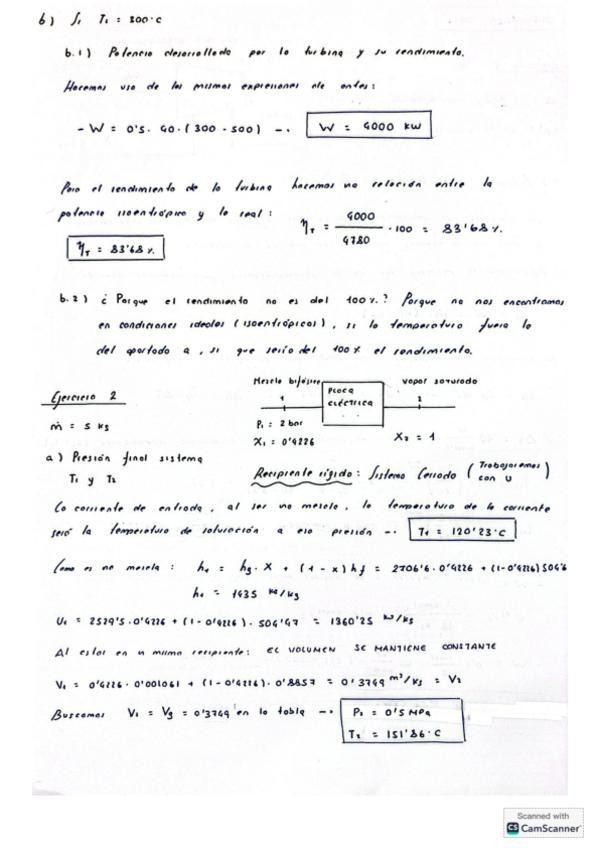 b) Si T2 = 300·C
b.1) Potencia desarrollada por la turbina y su rendimiento.
Hacemos uso de las mismas expresiones de antes:
- W = 0'5 · 40 · (300 - 500) → W = 4000 KW
Para el rendimiento de la turbina hacemos una relación entre la
potencia isoentrópica y la real: ηT = 4000 / 4780 · 100 = 83'68 %.
ηT = 83'68 %.
b.2) ¿ Porque el rendimiento no es del 100 %? Porque no nos encontramos
en condiciones ideales (isoentrópicas), si la temperatura fuera la
del apartado a, si que sería del 100 % el rendimiento.
Ejercicio 2
Mezcla bifásica PLACA ELÉCTRICA vapor saturado
1 2
m = 5 kg
P1 = 2 bar
X1 = 0'4226 X2 = 1
a) Presión final sistema
T1 y T2
Recipiente rígido: Sistema Cerrado (Trabajaremos con U)
La corriente de entrada, al ser una mezcla, la temperatura de la corriente
será la temperatura de saturación a esa presión → T1 = 120'23·C
Como es una mezcla: h1 = hg · X + (1 - x) hf = 2706'6 · 0'4226 + (1-0'4226) 504'6
h1 = 1435 kJ/kg
U1 = 2529'5 · 0'4226 + (1-0'4226) · 504'47 = 1360'25 kJ/kg
Al estar en un mismo recipiente: EL VOLUMEN SE MANTIENE CONSTANTE
V1 = 0'4226 · 0'001061 + (1-0'4226) · 0'8857 = 0'3749 m³/kg = V2
Buscamos V2 = Vg = 0'3749 en la tabla → P2 = 0'5 MPa
T2 = 151'86·C
Scanned with
CS CamScanner